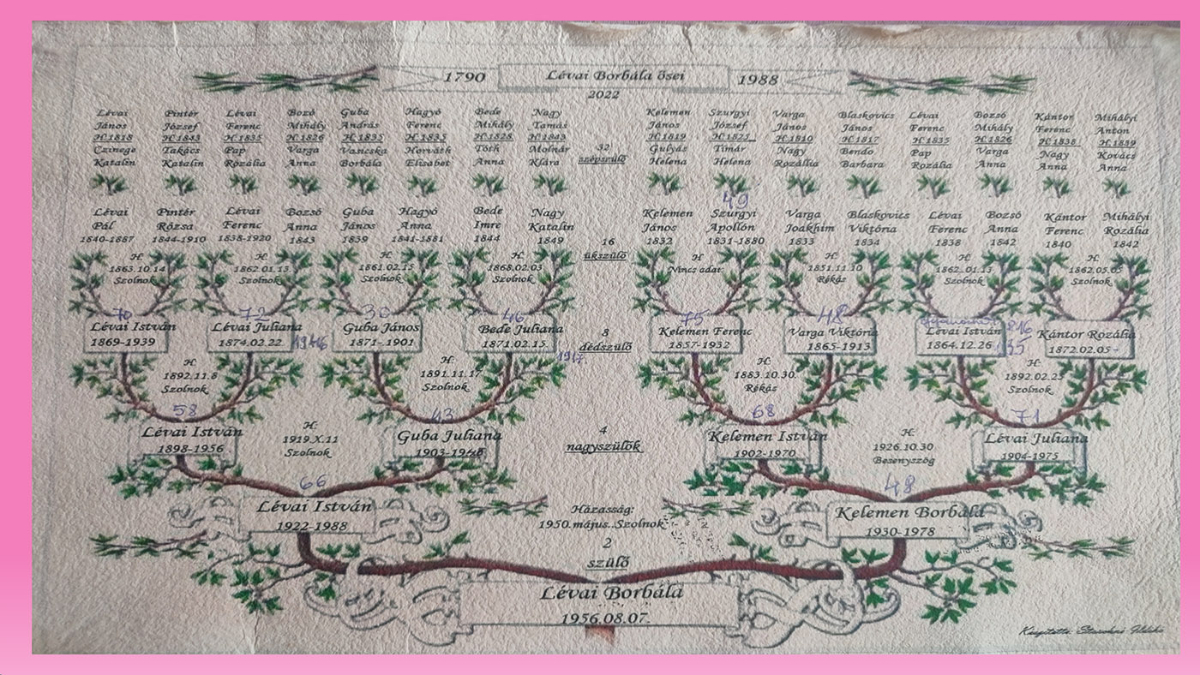 1790 Lévai Borbála ősei 1988
2022
Lévai Pintér Lévai Bozó Guba Hagyó Bede Nagy Kelemen Szurgyi Varga Blaskovics Lévai Bozsó Kántor Mihályi
János József Ferenc Mihály András Ferenc Mihály Tamás János József János János Ferenc Mihály Ferenc Antón
H:1818 H:1843 H:1835 H:1826 H:1835 H:1835 H:1828 H:1843 H:1819 H:1825 H:1810 H:1817 H:1835 H:1826 H:1838 H:1839
Czinege Takács Pap Varga Vasicska Horváth Tóth Molnár Gulyás Tímár Nagy Bendo Pap Varga Nagy Kovács
Katalin Katalin Rozália Anna Borbála Elisabet Anna Klára Helena Helena Rozállia Barbara Rozália Anna Anna Anna
32
szépszülő
49
Lévai Pintér Lévai Bozsó Guba Hagyó Bede Nagy Kelemen Szurgyi Varga Blaskovics Lévai Bozsó Kántor Mihályi
Pál Rózsa Ferenc Anna János Anna Imre Katalin János Apollón Joakhim Viktória Ferenc Anna Ferenc Rozália
1840-1887 1844-1910 1838-1920 1843 1839 1841-1881 1844 1849 1832 1831-1880 1833 1834 1838 1842 1840 1842
16
ükszülő
H: H: H: H: H: H: H: H:
1863.10.14 1862.01.13 1861.02.15 1868.02.03 Nincs adat 1851.11.10 1862.01.13 1862.05.05
Szolnok Szolnok Szolnok Szolnok Rékás Szolnok Szolnok
70 72 30 46 75 48
Lévai István Lévai Juliana Guba János Bede Juliana Kelemen Ferenc Varga Viktória Lévai István Kántor Rozália
1869-1939 1874.02.22 1946 1871-1901 1871.02.15. 1917. 1857-1932 1865-1913 1864.12.26 1872.02.05-
8
dédszülő
H: H: H: H:
1892.11.8 1891.11.17 1883.10.30. 1892.02.23
Szolnok Szolnok Rékás Szolnok
58 43 68 71
Lévai István H: Guba Juliana 4 Kelemen István H: Lévai Juliana
1898-1956 1919.X.11 1903-1946 nagyszülők 1902-1970 1926.10.30 1904-1975
Szolnok Besenyszög
66 48
Lévai István Házasság: Kelemen Borbála
1922-1988 1950.május..Szolnok 1930-1978
2
szülő
Lévai Borbála
1956.08.07.
Készítette: